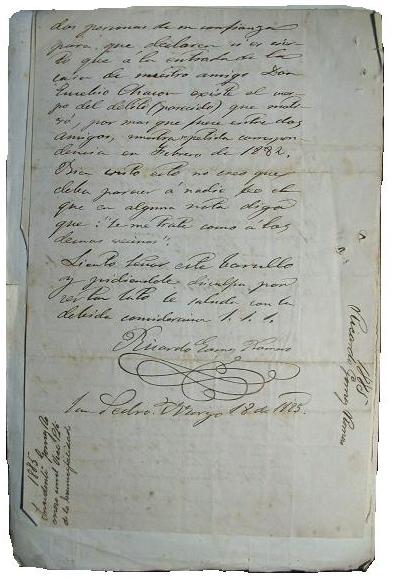 dos personas de mi confianza
para que declaren si es cier-
to que á la entrada de la
casa de nuestro amigo Don
Eurelio Chacon existe el cuer-
po del delito (parecido) que
por mas que
amigos, nuestra
dencia en Febrero de 1882.
Bien visto esto no creo que
deba parecer á nadie feo el
que en alguna nota diga
que: "se me trate como a los
demas vecinos".
Siento Señor este barullo
y pidiendole disculpa por
ser tan lato le saluda con la
debida consideracion S. S. S.
Ricardo Gomez Romero
San Pedro. Marzo 18 de 1885.
1885
Ricardo Gomez Romero
1885
de la municipalidad